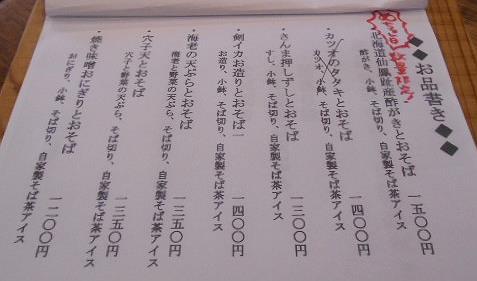 ◆◆お品書き◆◆
数量限定!
北海道仙鳳趾産酢がきとおそば 一五〇〇円
酢がき、小鉢、そば切り、自家製そば茶アイス
・カツオのタタキとおそば 一四〇〇円
カツオ、小鉢、そば切り、自家製そば茶アイス
・さんま押しずしとおそば 一三〇〇円
すし、小鉢、そば切り、自家製そば茶アイス
・剣イカお造りとおそば 一四〇〇円
お造り、小鉢、そば切り、自家製そば茶アイス
・海老の天ぷらとおそば 一三五〇円
海老と野菜の天ぷら、そば切り、自家製そば茶アイス
・穴子天とおそば 一三五〇円
穴子と野菜の天ぷら、そば切り、自家製そば茶アイス
・焼き味噌おにぎりとおそば 一二〇〇円
おにぎり、小鉢、そば切り、自家製そば茶アイス